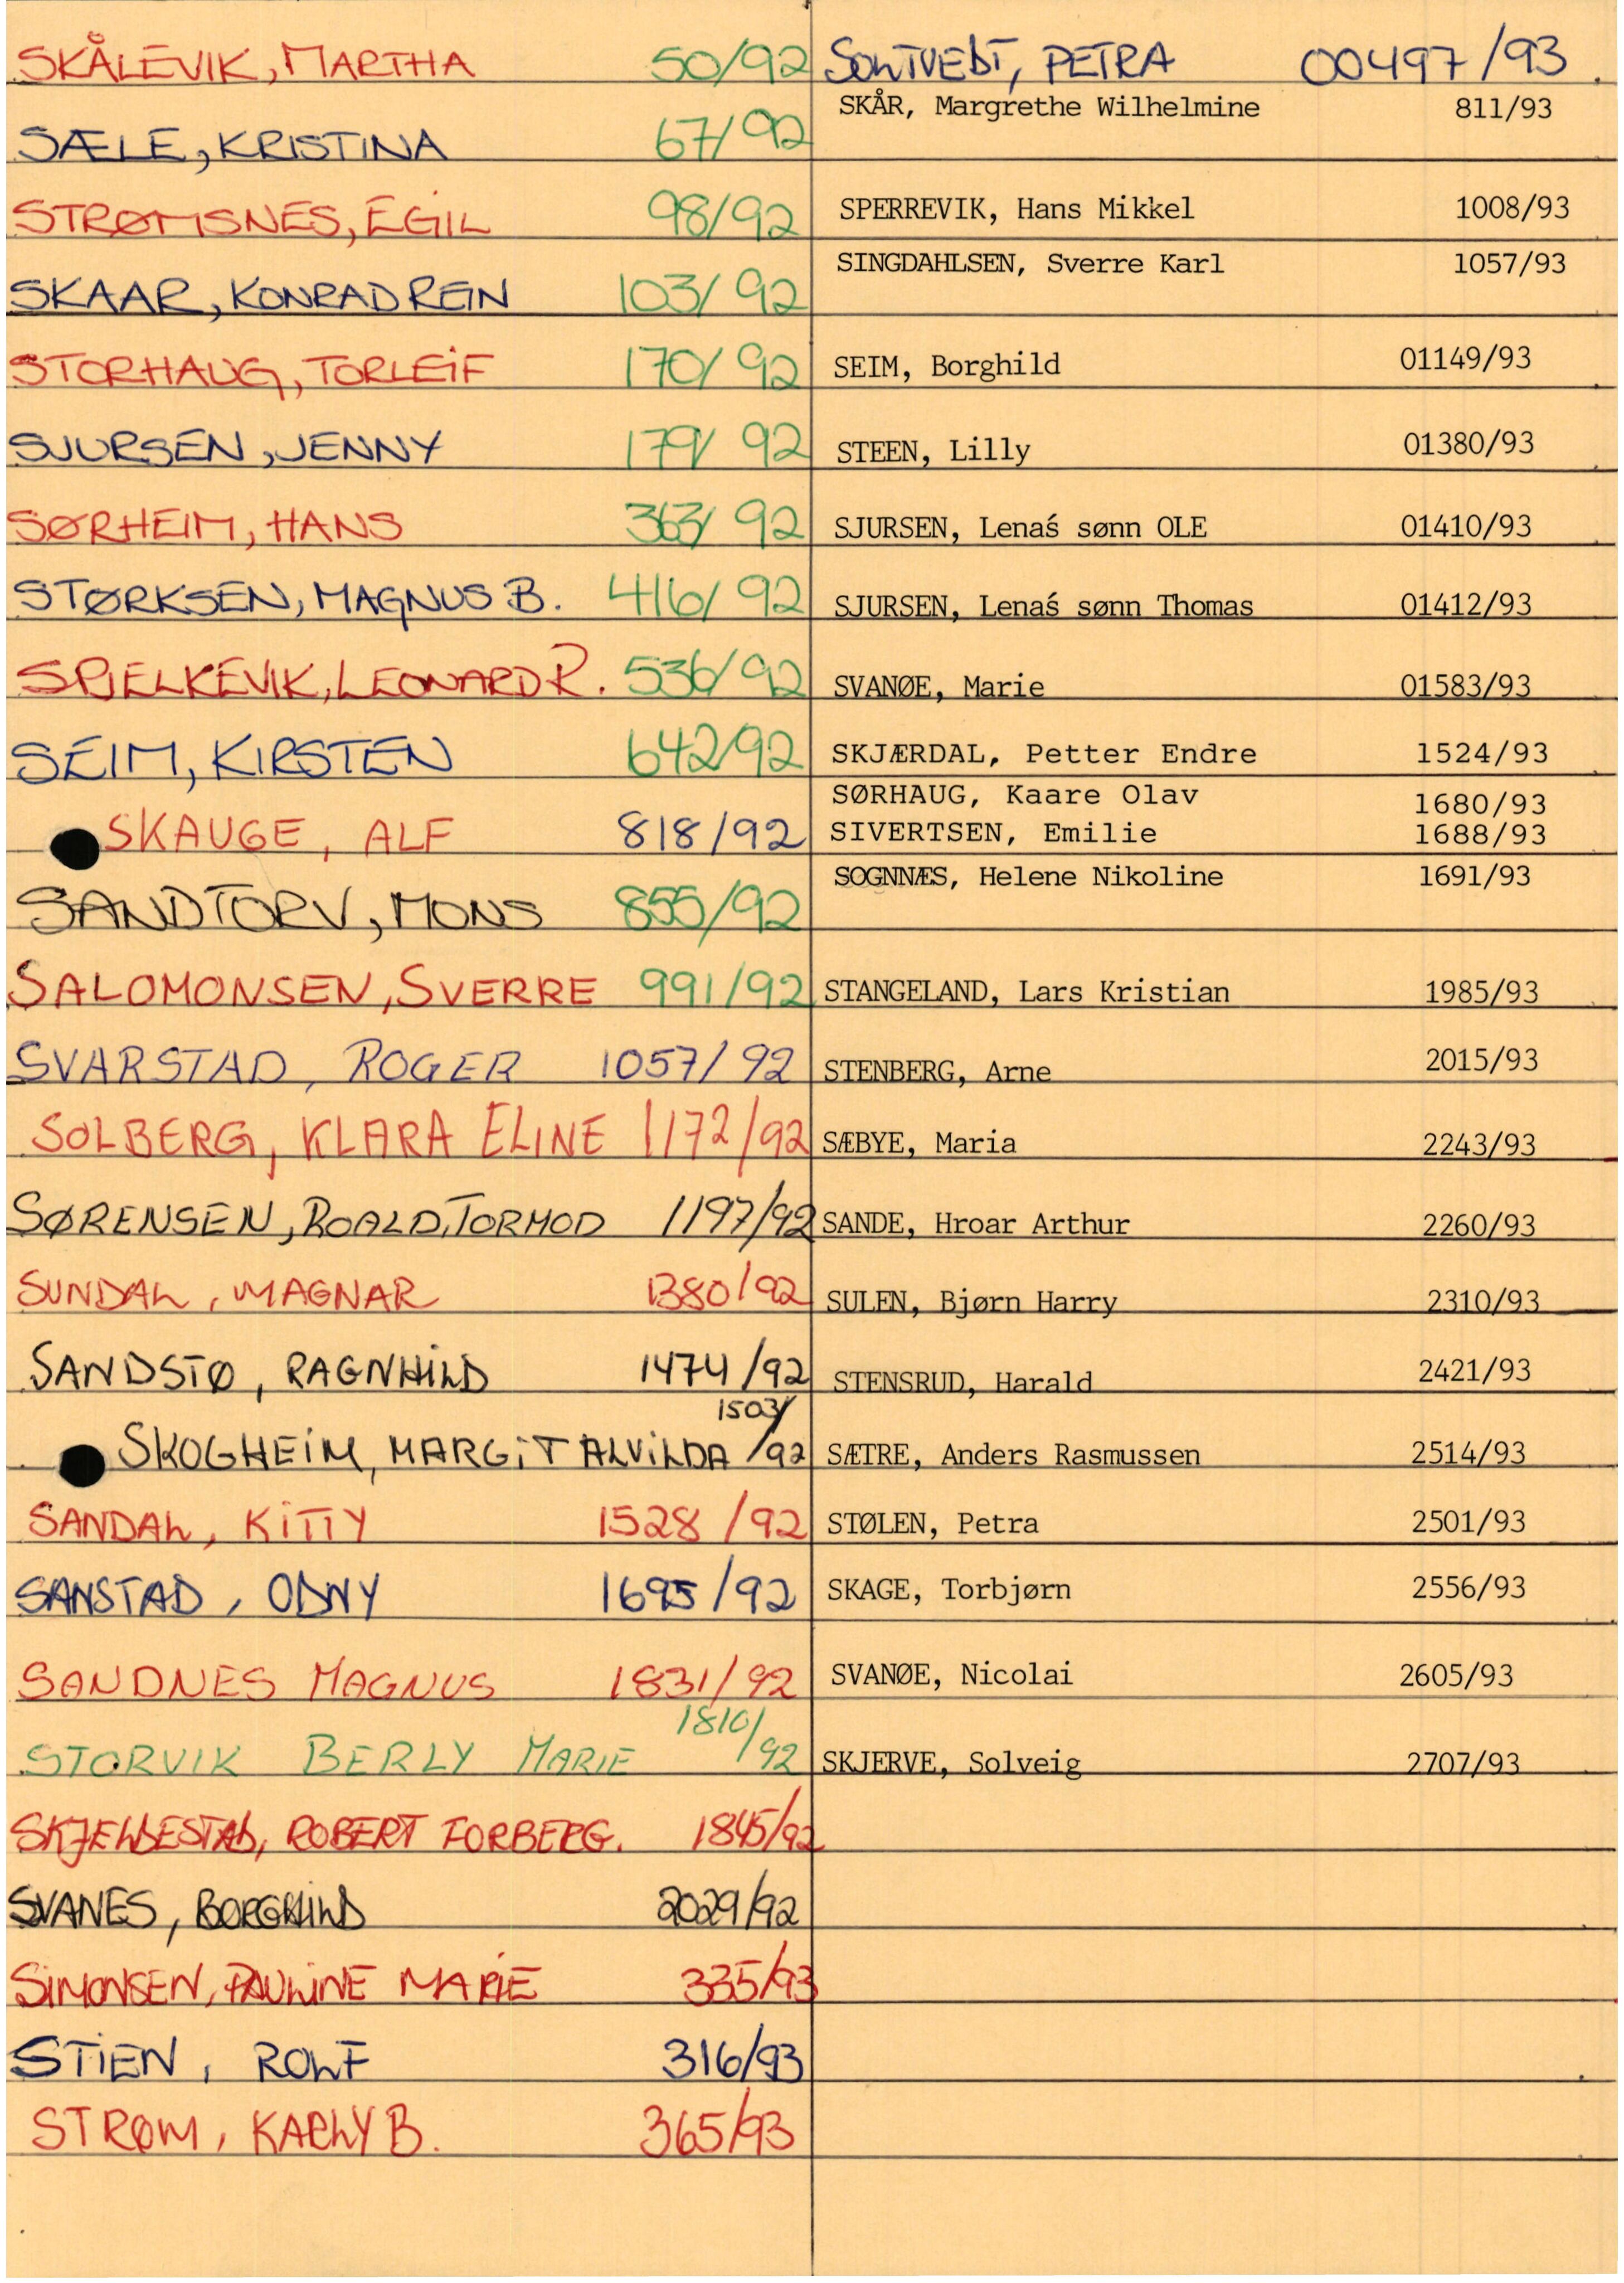 SKÅLEVIK, MARTHA 50/92
SÆLE, KRISTINA 67/92
STRØMSNES, EGIL 98/92
SKAAR, KONRAD REIN 103/92
STORHAUG, TORLEIF 170/92
SJURSEN, JENNY 179/92
SØRHEIM, HANS 363/92
STØRKSEN, MAGNUS B. 416/92
SPJELKEVIK, LEONARD R. 536/92
SEIM, KIRSTEN 642/92
SKAUGE, ALF 818/92
SANDTORV, MONS 855/92
SALOMONSEN, SVERRE 991/92
SVARSTAD, ROGER 1057/92
SOLBERG, KLARA ELINE 1172/92
SØRENSEN, ROALD, TORMOD 1197/92
SUNDAL, MAGNAR 1380/92
SANDSTØ, RAGNHILD 1474/92
SKOGHEIM, MARGIT ALVILDA 1503/92
SANDAL, KITTY 1528/92
SANSTAD, ODNY 1695/92
SANDNES MAGNUS 1831/92
STORVIK BERLY MARIE 1810/92
SKJELDESTAD, ROBERT FORBERG. 1845/92
SVANES, BORGHILD 2029/92
SIMONSEN, PAULINE MARIE 335/93
STIEN, ROLF 316/93
STRØM, KARLY B. 365/93
SOLTVEDT, PETRA 00497/93
SKÅR, Margrethe Wilhelmine 811/93
SPERREVIK, Hans Mikkel 1008/93
SINGDAHLSEN, Sverre Karl 1057/93
SEIM, Borghild 01149/93
STEEN, Lilly 01380/93
SJURSEN, Lenaś sønn OLE 01410/93
SJURSEN, Lenaś sønn Thomas 01412/93
SVANØE, Marie 01583/93
SKJÆRDAL, Petter Endre 1524/93
SØRHAUG, Kaare Olav 1680/93
SIVERTSEN, Emilie 1688/93
SOGNNÆS, Helene Nikoline 1691/93
STANGELAND, Lars Kristian 1985/93
STENBERG, Arne 2015/93
SÆBYE, Maria 2243/93
SANDE, Hroar Arthur 2260/93
SULEN, Bjørn Harry 2310/93
STENSRUD, Harald 2421/93
SÆTRE, Anders Rasmussen 2514/93
STØLEN, Petra 2501/93
SKAGE, Torbjørn 2556/93
SVANØE, Nicolai 2605/93
SKJERVE, Solveig 2707/93